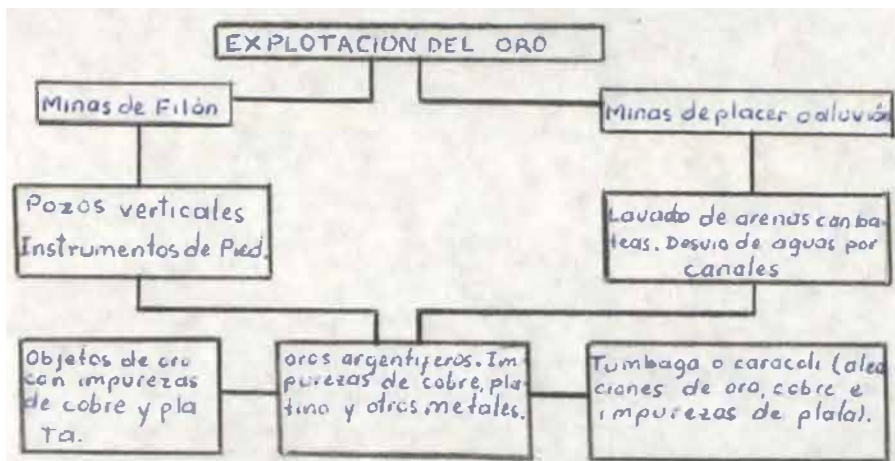 EXPLOTACION DEL ORO
Minas de Filón
Minas de placer o aluvión
Pozos verticales
Instrumentos de Pied.
Lavado de arenas con ba-
teas. Desvio de aguas por
canales
Objetos de oro
con impurezas
de cobre y pla
ta.
oros argentiferos. Im-
purezas de cobre, pla-
tino y otros metales.
Tumbaga o caracoli (alea
ciones de oro, cobre e
impurezas de plata).